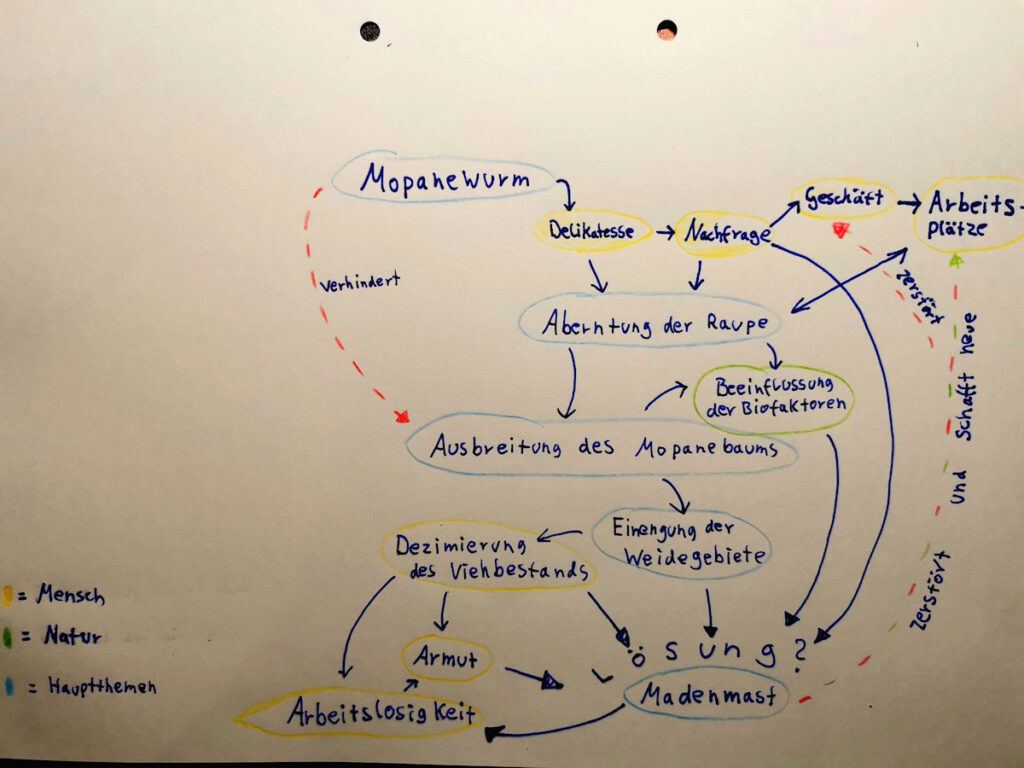 Mopanewurm
Delikatesse
Nachfrage
Geschäft
Arbeits-
plätze
verhindert
zerstört
Aberntung der Raupe
Beeinflussung
der Biofaktoren
Ausbreitung des Mopanebaums
Einengung der
Weidegebiete
Dezimierung
des Viehbestands
Armut
Arbeitslosigkeit
Lösung?
Madenmast
zerstört und schafft neue
= Mensch
= Natur
= Hauptthemen